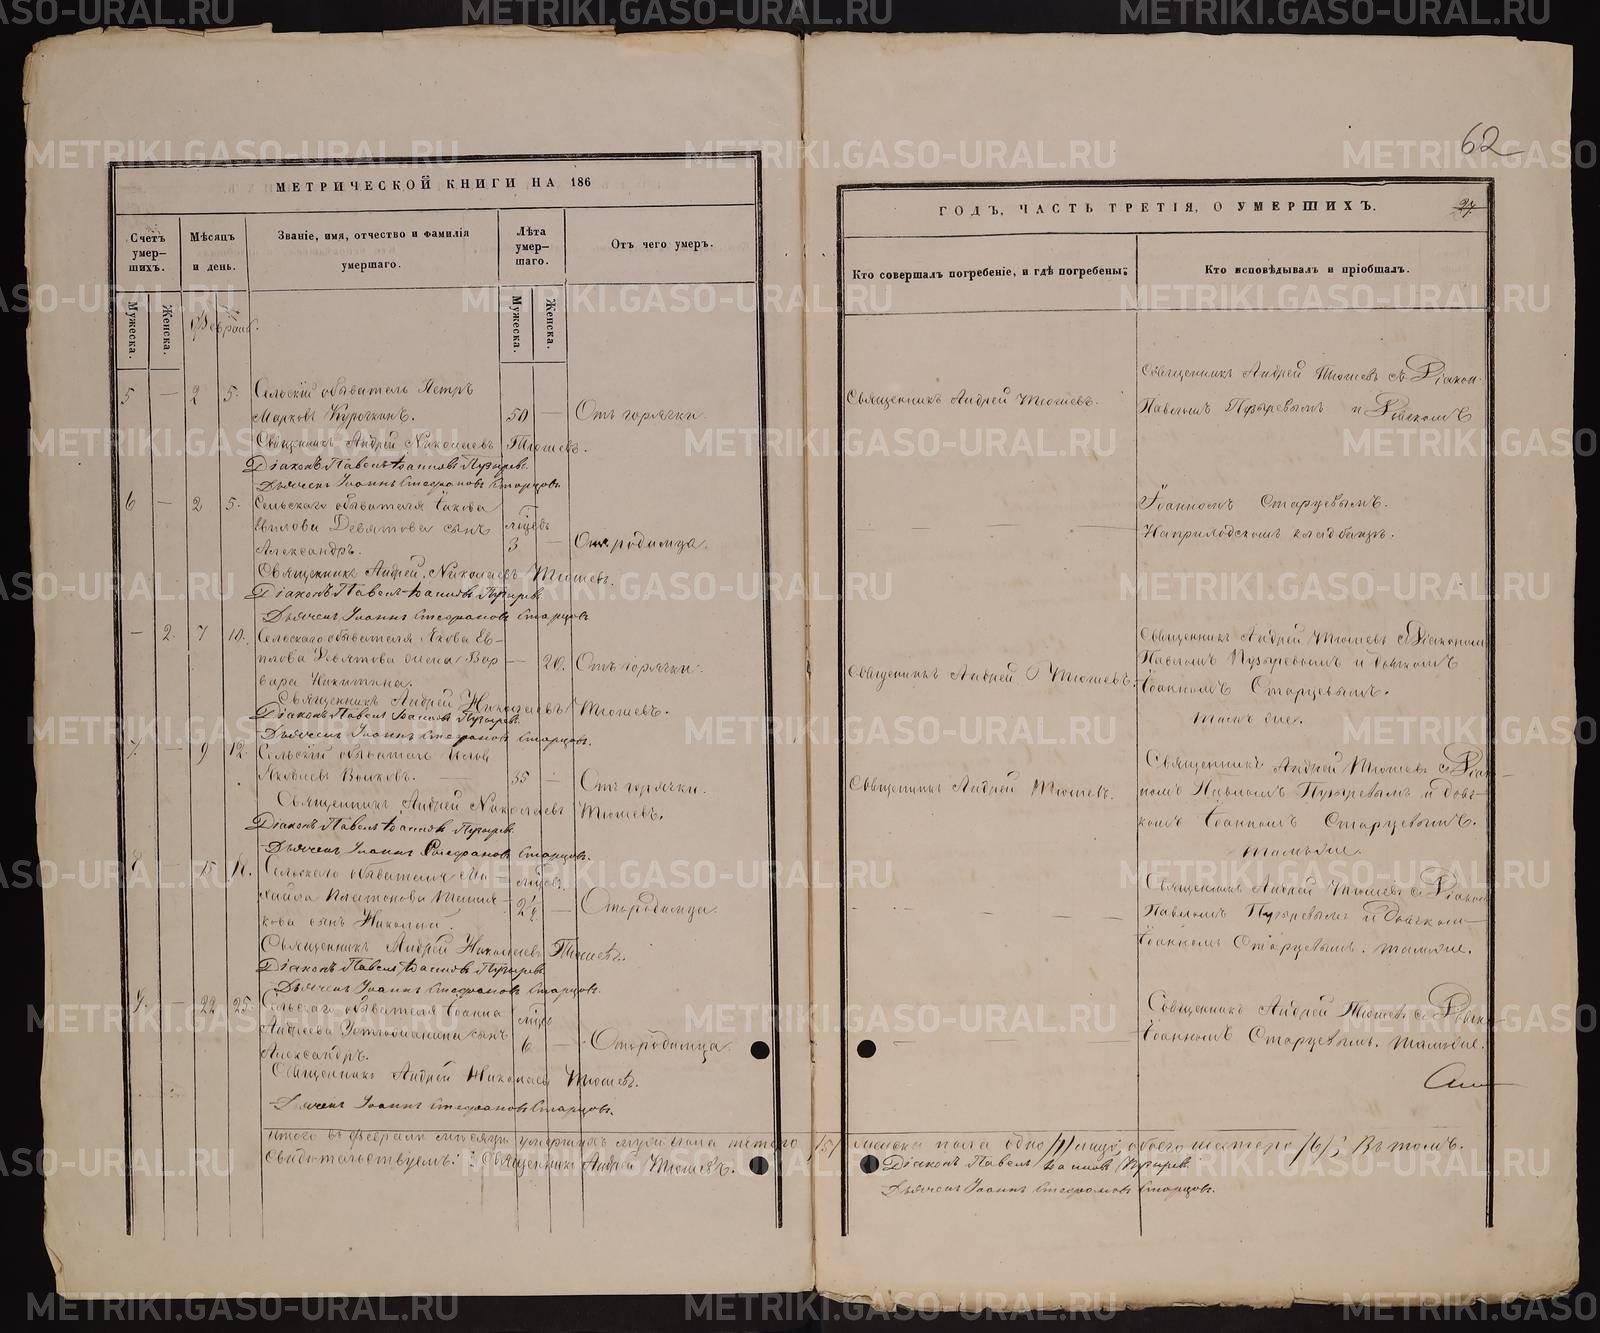 62
МЕТРИЧЕСКОЙ КНИГИ НА 186
ГОДЪ, ЧАСТЬ ТРЕТІЯ, О УМЕРШИХЪ.
27
Счетъ умер-шихъ.
Мѣсяцъ и день.
Званіе, имя, отчество и фамилія умершаго.
Лѣта умер-шаго.
Отъ чего умер.
Кто совершалъ погребеніе, и гдѣ погребены:
Кто исповѣдывалъ и пріобшалъ.
Мужеска.
Женска.
Мужеска.
Женска.
Февраль.
5 — 2 5. Сельскій обыватель Петръ
Марковъ Курочкинъ. 50 — Отъ горячки
Священникъ Андрей Николаевъ Тюшевъ.
Діаконъ Павелъ Іоанновъ Пузырев.
Дьячекъ Іоаннъ Стефановъ Старцовъ
6 — 2 5. Сельскаго обывателя Іакова
Девятова сынъ
Александръ. 3 — родимца.
Священникъ Андрей Николаевъ Тюшевъ.
Діаконъ Павелъ Іоанновъ Пузырев.
Дьячекъ Іоаннъ Стефановъ Старцовъ
— 2. 7 10. Сельскаго обывателя Якова Ев-
Девятова жена Вар
вара Никитина. — 20. Отъ горячки.
Священникъ Андрей Николаевъ Тюшевъ.
Діаконъ Павелъ Іоанновъ Пузырев.
Дьячекъ Іоаннъ Стефановъ Старцовъ.
7. — 9 12. Сельскій обыватель
Яковлевъ Волковъ. 55 — Отъ горячки.
Священникъ Андрей Николаевъ Тюшевъ.
Діаконъ Павелъ Іоанновъ Пузырев.
Дьячекъ Іоаннъ Стефановъ Старцовъ.
8 — 15 Сельскаго обывателя Ми
хайла Платонова
кова сынъ Николай. 2½ — Отъ родимца.
Священникъ Андрей Николаевъ Тюшевъ.
Діаконъ Павелъ Іоанновъ Пузырев
Дьячекъ Іоаннъ Стефановъ Старцовъ.
9. — 22 25. Сельскаго обывателя Іоанна
Андреева сынъ
Александръ. 6 — Отъ родимца.
Священникъ Андрей Николаевъ Тюшевъ.
Дьячекъ Іоаннъ Стефановъ Старцовъ.
Итого въ феврале месяце умершихъ мужеска пятеро /5/ женска пола одно /1/ обоего шестеро /6/; Въ томъ.
Свидетельствуемъ: Священникъ Андрей Тюшевъ.
Діаконъ Павелъ Іоанновъ Пузырев
Дьячекъ Іоаннъ Стефановъ Старцовъ.
Священникъ Андрей Тюшевъ.
Священникъ Андрей Тюшевъ съ Діакон.
Павломъ Пузыревымъ и Дьячкомъ
Іоанномъ Старцевымъ.
На приходскомъ кладбище.
Священникъ Андрей Тюшевъ.
Священникъ Андрей Тюшевъ съ Діакономъ
Павломъ Пузыревымъ и дьячкомъ
Іоанномъ Старцевымъ.
Тамъ же.
Священникъ Андрей Тюшев.
Священникъ Андрей Тюшевъ съ Діак-
номъ Павломъ Пузыревымъ и дьяч-
комъ Іоанномъ Старцевымъ.
тамъ же.
Священникъ Андрей Тюшевъ съ Діакон
Павломъ Пузыревымъ и дьячком
Іоанномъ Старцевымъ. тамъ же.
Священникъ Андрей Тюшевъ съ Дьячк
Іоанномъ Старцевымъ. тамъ же.
METRIKI.GASO-URAL.RU